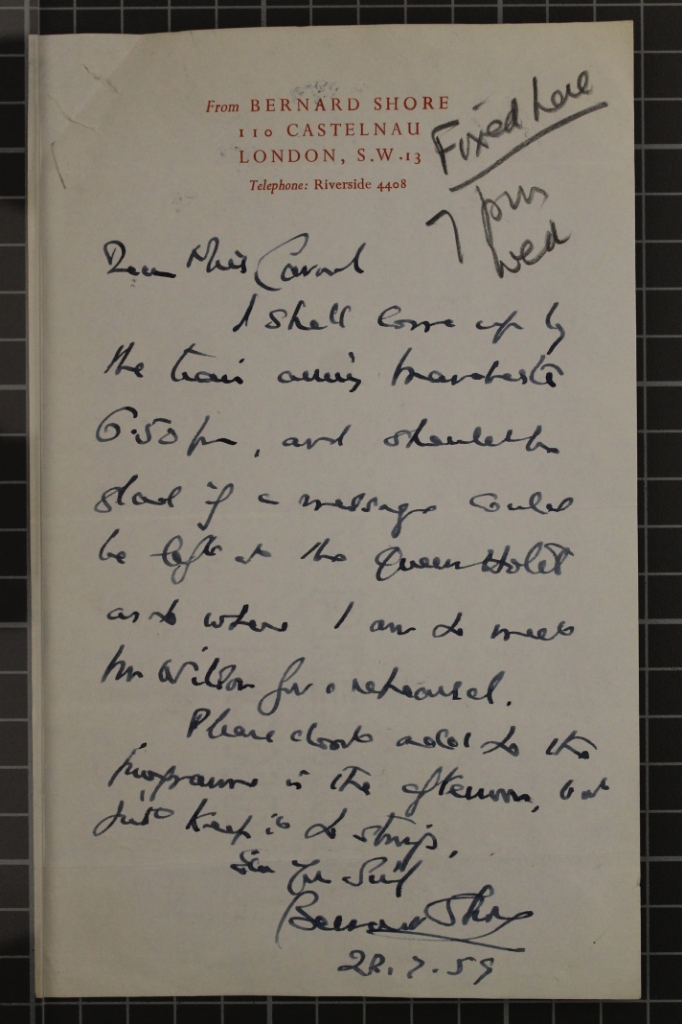 From BERNARD SHORE
110 CASTELNAU
LONDON, S.W.13
Telephone: Riverside 4408
Fixed here
7 pm
Wed
Dear Miss
I shall come up by
the train arriving Manchester
6.50 pm, and should be
glad if a message could
be left at the Queens Hotel
as to where I am to meet
Mr Wilson for a rehearsal.
Please don't add to the
programme in the afternoon, but
just keep it to strings.
Bernard Shore
28.7.59